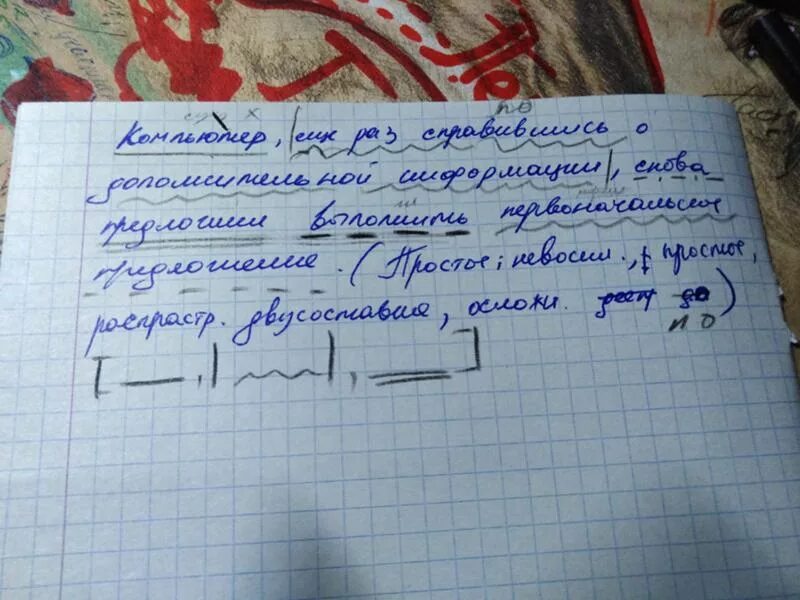 по
х
Компьютер, |еще раз справившись о
дополнительной информации|, снова
предложил выполнить первоначальное
предложение. (Простое; невоскл., простое,
распростр. двусоставное, осложн.
по